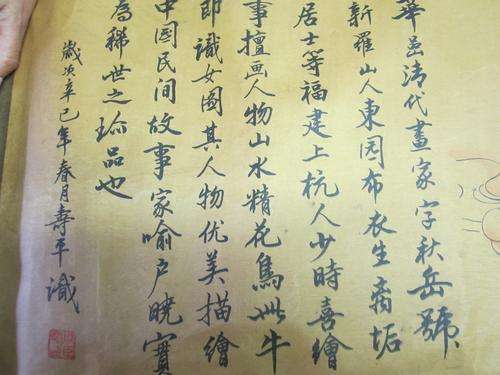 華嵒清代畫家字秋岳號
新羅山人東园布衣生离垢
居士等福建上杭人少時喜繪
事擅画人物山水精花鳥此牛
郎織女图其人物优美描繪
中国民间故事家喻户曉實
為稀世之珎品也
歲次辛巳年春月壽平識